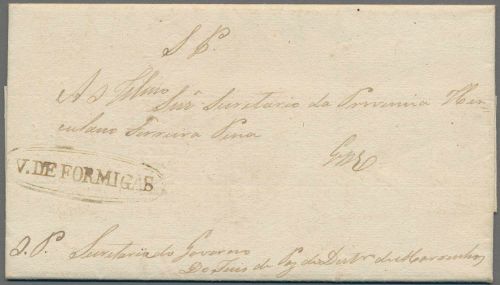 S. P.
Ao Illmo Snr̃ Secretario da Provincia Her-
culano Ferreira Pena
V. DE FORMIGAS
D. P. Secretaria do Governo
Do Juis de Paz do Destr.